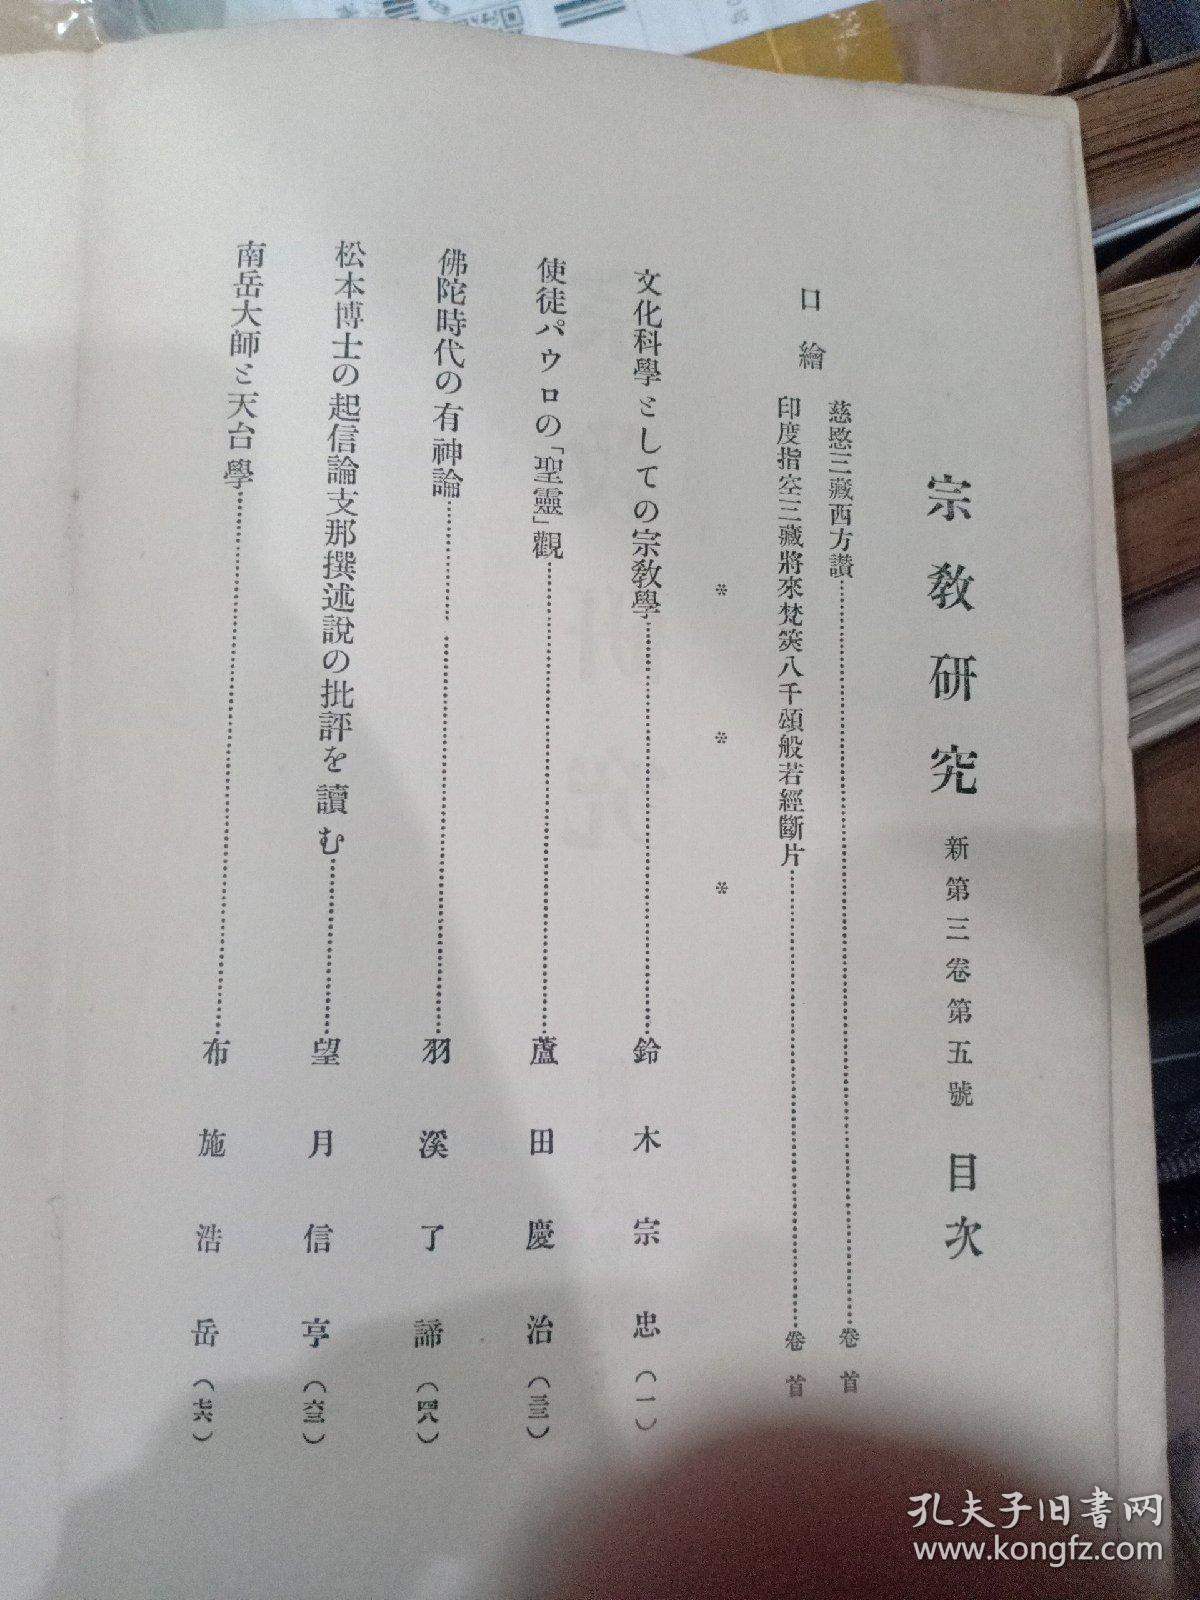 宗教研究 新第三卷第五號 目次
口繪
慈愍三藏西方讃……卷首
印度指空三藏將來梵筴八千頌般若經斷片……卷首
* * *
文化科學としての宗教學……鈴木宗忠(一)
使徒パウロの「聖靈」觀……蘆田慶治(三三)
佛陀時代の有神論……羽溪了諦(四八)
松本博士の起信論支那撰述說の批評を讀む……望月信亨(六三)
南岳大師と天台學……布施浩岳(七六)
孔夫子旧书网
www.kongfz.com